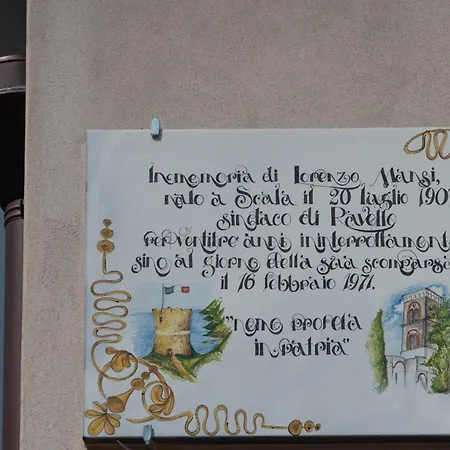 In memoria di Lorenzo Mansi,
nato a Scala il 20 luglio 190
sindaco di Ravello
per ventitre anni ininterrottamente
sino al giorno della sua scomparsa
il 16 febbraio 1971.
"nemo profeta
in patria"